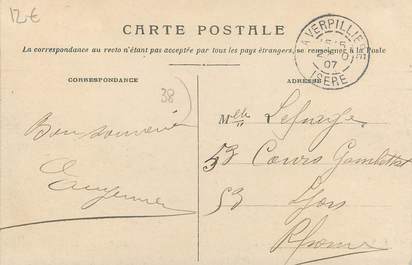 12€
CARTE POSTALE
La correspondance au recto n'étant pas acceptée par tous les pays étrangers, se renseigner à la Poste
LA VERPILLIÈRE
07
ISÈRE
CORRESPONDANCE
ADRESSE
38
Bon souvenir
Eugénie
Melle Lefarge
53 Cours Gambetta
53 Lyon
Rhône